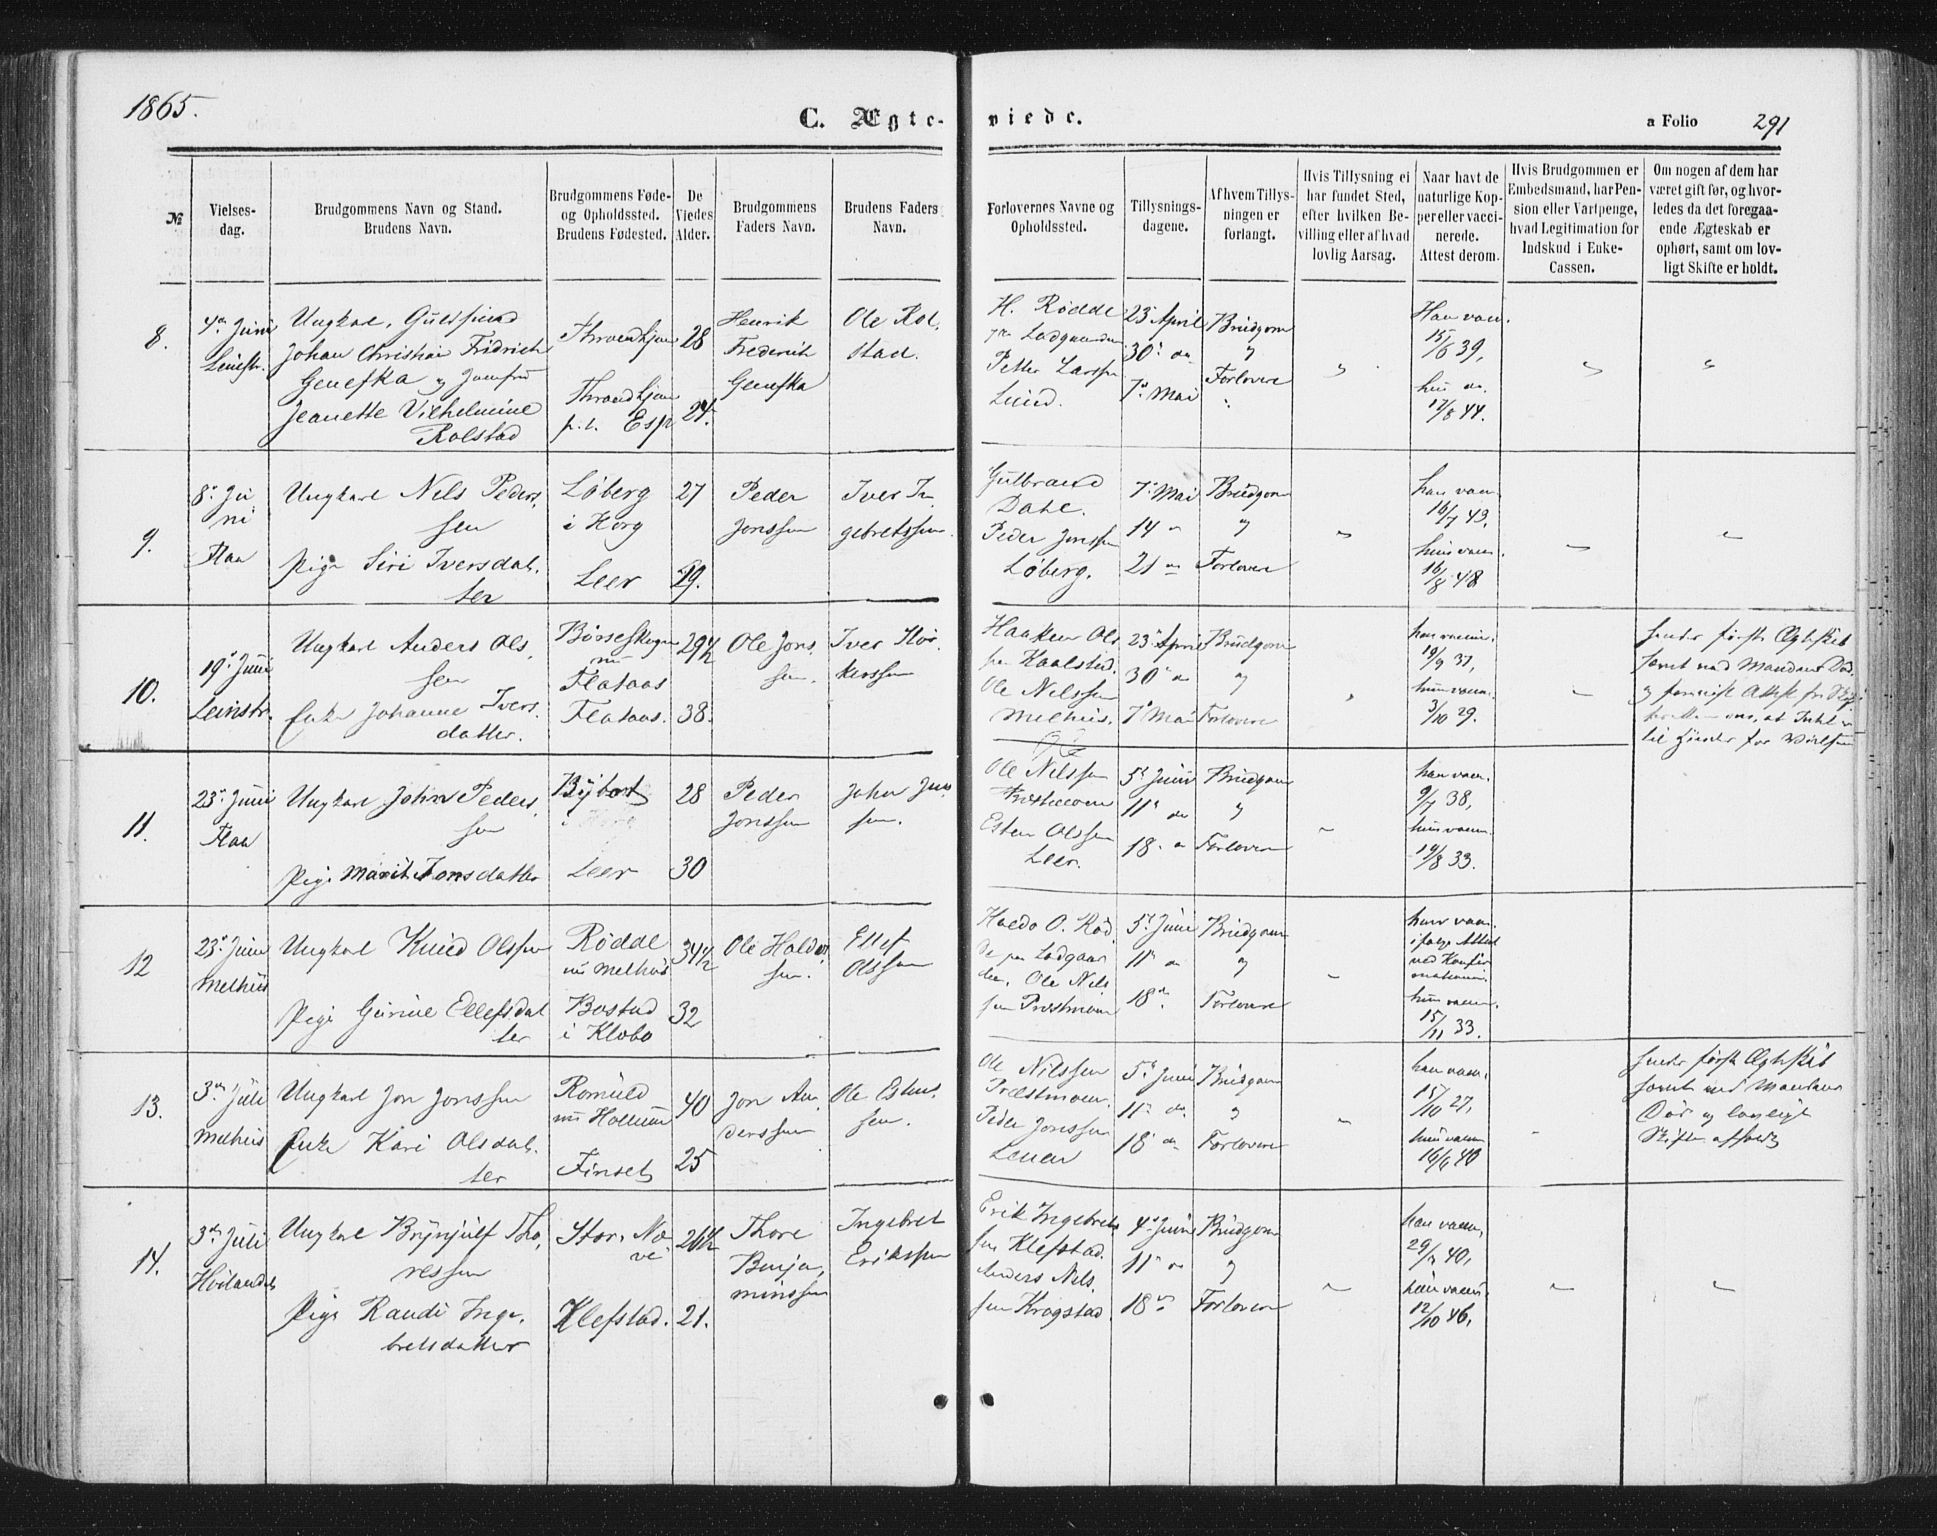 1865.
C. Ægte-
viede.
a Folio 291
№
Vielses-
dag.
Brudgommens Navn og Stand.
Brudens Navn.
Brudgommens Føde-
og Opholdssted.
Brudens Fødested.
De
Viedes
Alder.
Brudgommens
Faders Navn.
Brudens Faders
Navn.
Forlovernes Navne og
Opholdssted.
Tillysnings-
dagene.
Af hvem Tillys-
ningen er
forlangt.
Hvis Tillysning ei
har fundet Sted,
efter hvilken Be-
villing eller af hvad
lovlig Aarsag.
Naar havt de
naturlige Kop-
per eller vacci-
nerede.
Attest derom.
Hvis Brudgommen er
Embedsmand, har Pen-
sion eller Vartpenge,
hvad Legitimation for
Indskud i Enke-
Cassen.
Om nogen af dem har
været gift før, og hvor-
ledes da det foregaa-
ende Ægteskab er
ophørt, samt om lov-
ligt Skifte er holdt.
8.
4de Juni
Leinstr.
Ungkarl, Guldsmed
Johan Christian Fridrich
Genefka og Jomfru
Jeanette Vilhelmine
Rolstad
Throndhjem
Throndhjem
p.t. Esp
28
24.
Henrik
Frederik
Genefka
Ole Rol.
stad.
H. Rødde
Petter Larssen
Lund.
23 April
30 do
7 Mai
Brudgom
og
Forlovere
Han vacc.
15/6 39,
hun do.
17/8 44.
9.
8 Ju
ni
Flaa
Ungkarl Nils Peders,
sen
Pige Siri Iversdat,
ter
Løberg
i Horg
Leer
27
19.
Peder
Jonssen
Iver In
gebretssen.
Gulbrand
Dahl.
Peder Jonssen
Løberg.
7 Mai
14 do
21 do
Brudgom
og
Forlovere
han vacc.
16/7 43,
hun vacc.
16/8 48
10.
19 Juni
Leinstr.
Ungkarl Anders Ols,
sen
Enke Johanne Ivers.
datter.
Børseskogn
nu
Flataas
Flataas.
29 1/2
38.
Ole Jons,
sen.
Iver Hor
kerssen
Haaken Ols
Ole Nilssen
Melhus.
23 April
30 do
7 Mai
Brudgom
og
Forlovere
han vaccin.
19/9 37,
hun vacc.
3/10 29.
hendes første Ægteskab
hævet ved Mandens Død,
11.
23 Juni
Flaa
Ungkarl John Peders,
sen
Pige Marit Jonsdatter
Bybort
Leer
28
30
Peder
Jonssen
John Jons
sen.
Ole Nilssen
Præstmoen
Esten Olssen
Leer.
5 Juni
11 do
18 do
Brudgom
og
Forlovere
han vacc.
9/7 38,
hun vacc.
19/8 33.
12
23 Juni
Melhus
Ungkarl Knud Olssen
Pige Gurine Ellefsdat
ter
Rødde
nu Melhus
Bostad
i Klæbo
34 1/2
32
Ole Haldor
sen.
Ellef
Olssen
Haldo O. Rød,
de paa Ladgaar
den, Ole Nils
sen Præstmoen
5 Juni
11 do
18 do.
Brudgom
og
Forlovere
han vacc.
ifølge Attest
ved Konfir
mationen.
hun vacc.
15/11 33.
13.
3die Juli
Melhus
Ungkarl Jon Jonssen
Enke Kari Olsdat,
ter
Romuld
nu Hollum
Finset
40
25
Jon An,
derssen
Ole Estens,
sen.
Ole Nilssen
Præstmoen.
Peder Jonssen
5 Juni
11 do
18 do
Brudgom
og
Forlovere
han vacc.
15/10 27,
hun vacc.
16/6 40
hendes første Ægteskab
hævet ved Mandens
Død og lovligt
Skifte afholdt
14.
3die Juli
Høilandet
Ungkarl Brynjulf Tho,
ressen
Pige Randi Inge,
bretsdatter
Stor. No
ve
Klefstad.
26 1/2
21.
Thore
Benja,
minssen
Ingebret
Erikssen
Erik Ingebrets
sen Klefstad.
Anders Nils,
sen Krogstad.
4 Juni
11 do
18 do
Brudgom
og
Forlovere
han vacc.
29/7 40,
hun vacc.
12/10 46,